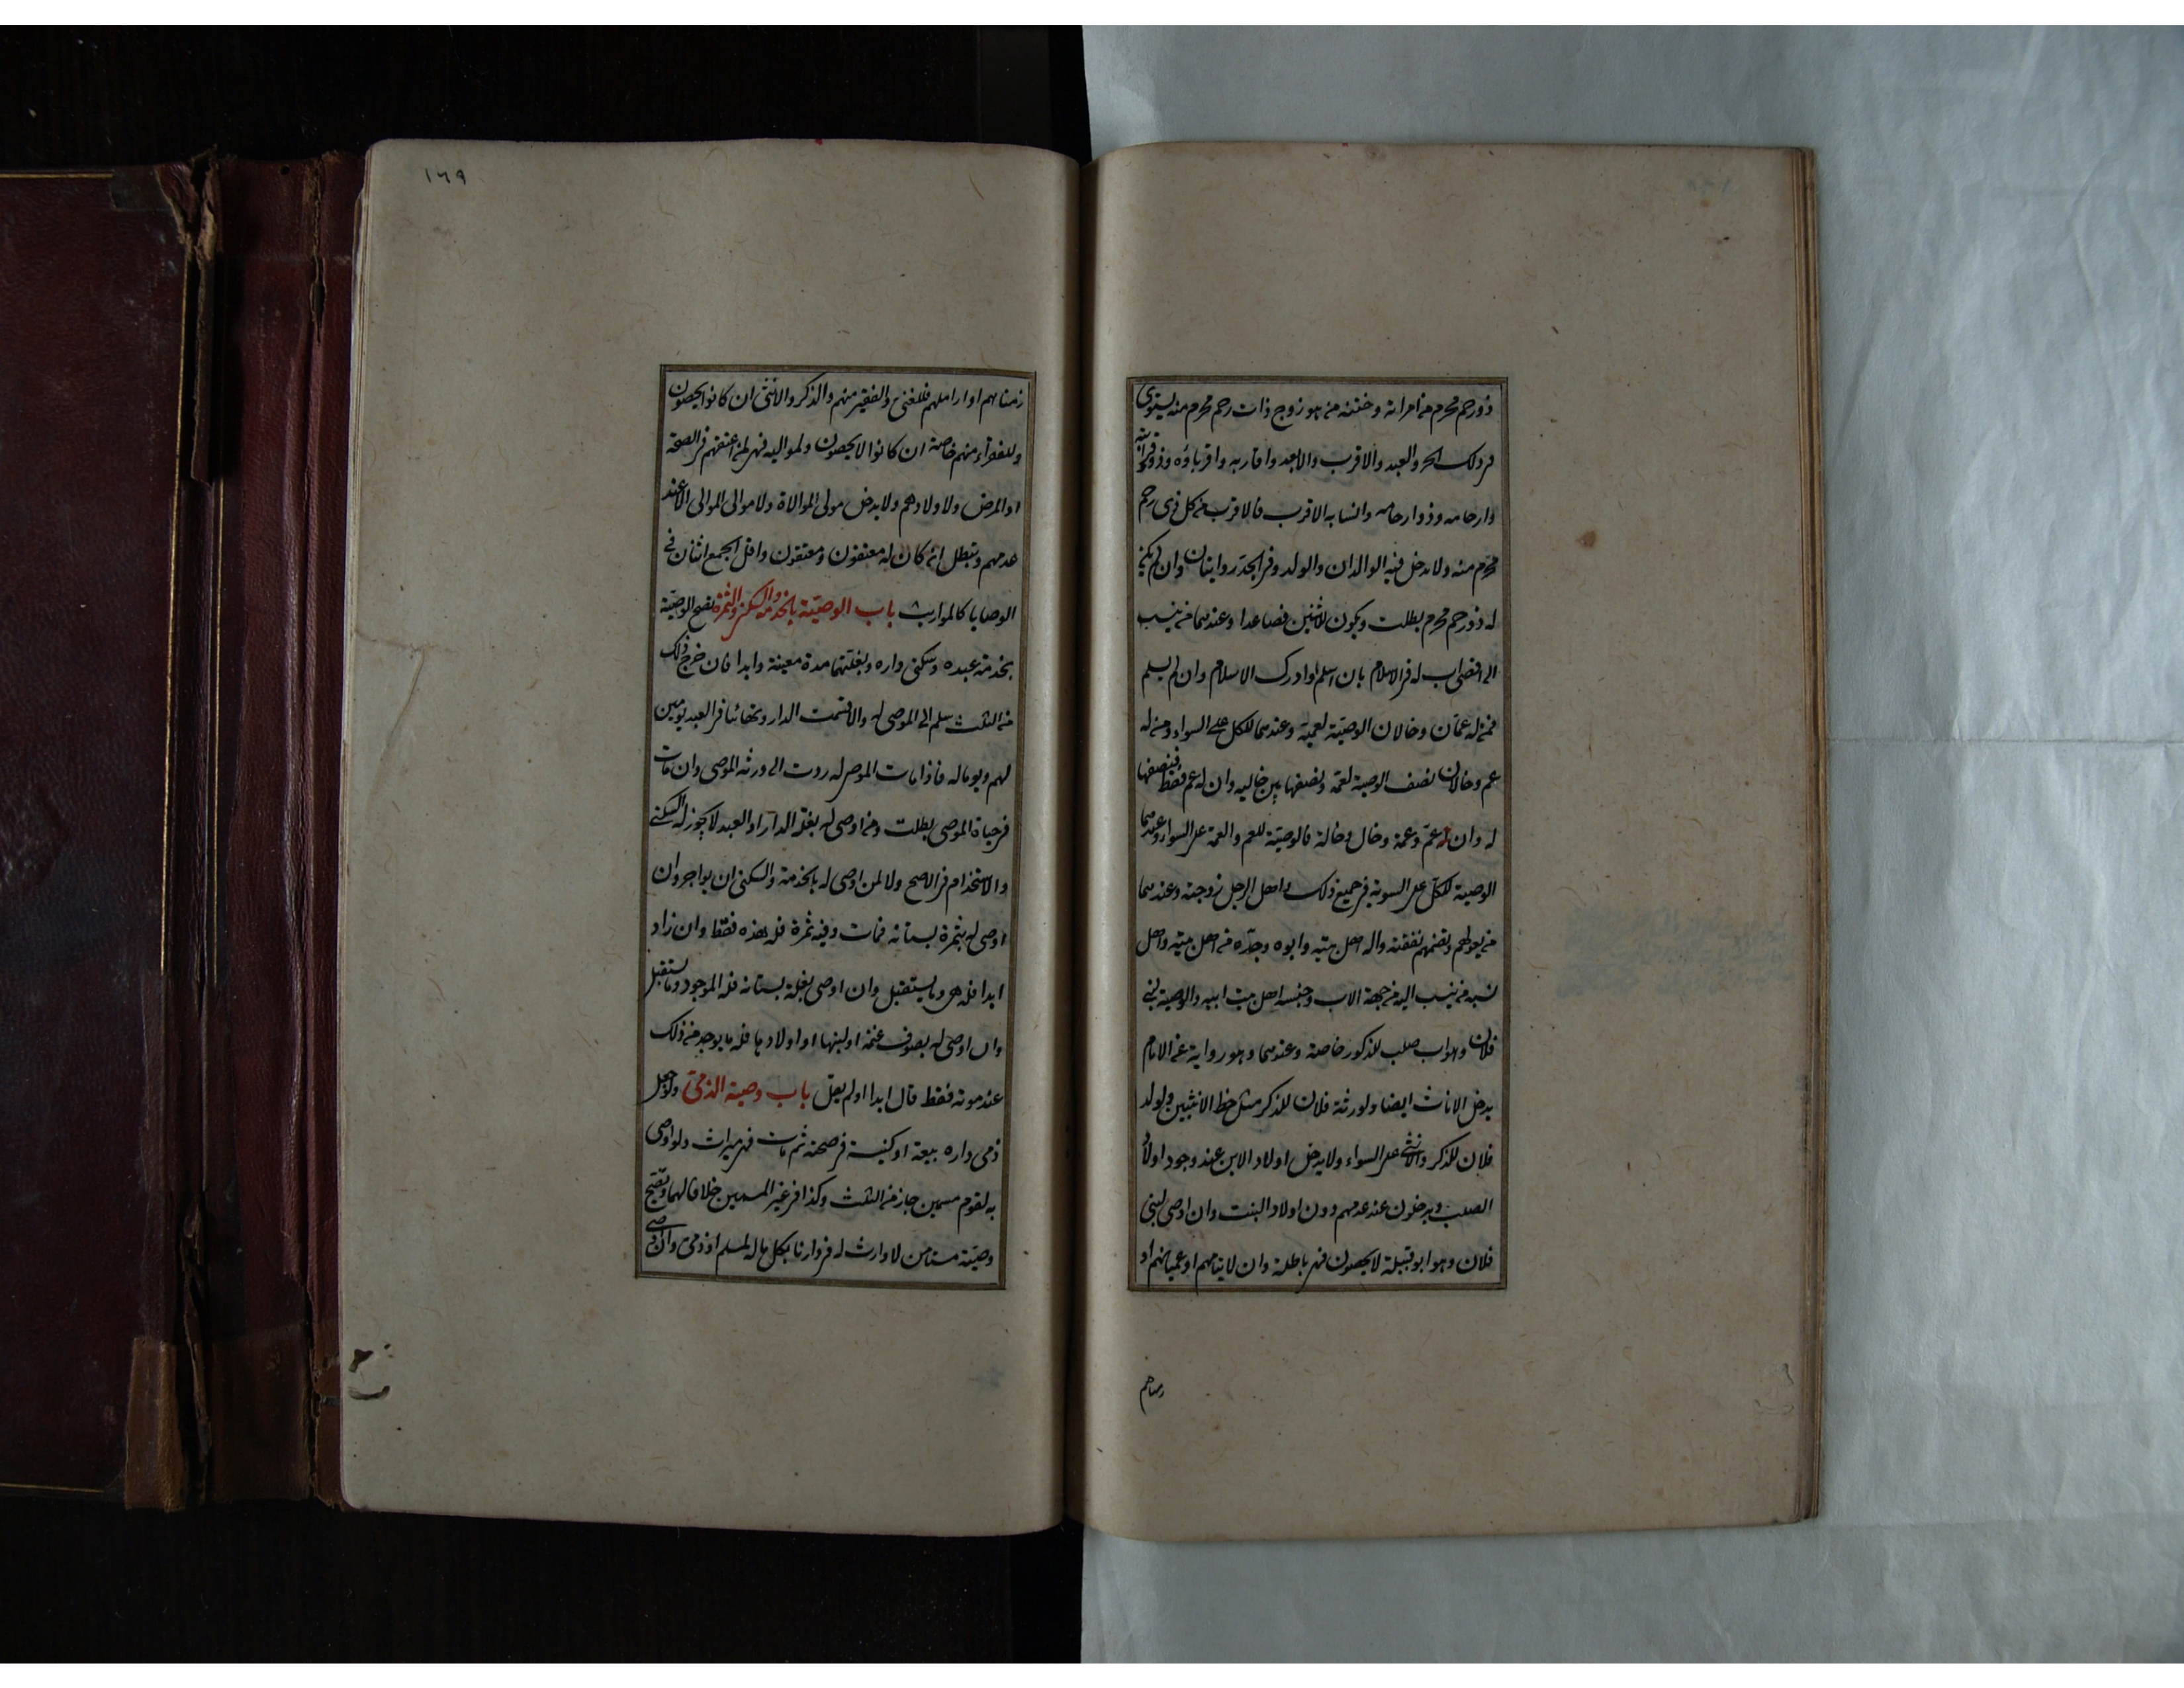 ذو رحم محرم من امراته وختنه من هو زوج ذات رحم محرم منه يستوى
فى ذلك الحر والعبد والاقرب والابعد واقاربه واقرباؤه وذو قرابته
وارحامه وذوارحامه وانسابه الاقرب فالاقرب من كل ذى رحم
محرم منه ولا يدخل فيه الوالدان والولد وفى الجد روايتان وان لم يكن
له ذو رحم محرم بطلت ويكون للاثنين فصاعدا وعندهما من ينسب
الى اقصى اب له فى الاسلام بان اسلم او ادرك الاسلام وان لم يسلم
فمن له عمان وخالان الوصية لعميه وعندهما للكل على السواء ومن له
عم وخالان نصف الوصية لعمه ونصفها بين خاليه وان له عم فقط فنصفها
له وان له عم وعمة وخال وخالة فالوصية للعم والعمة على السواء وعندهما
الوصية للكل على السوية فى جميع ذلك واهل الرجل زوجته وعندهما
من يعولهم وتضمهم نفقته واله اهل بيته وابوه وجده من اهل بيته واهل
نسبه من ينسب اليه من جهة الاب وجنسه اهل بيت ابيه والوصية لبنى
فلان وهو اب صلب للذكور خاصة وعندهما وهو رواية عن الامام
يدخل الاناث ايضا ولورثة فلان للذكر مثل حظ الانثيين ولولد
فلان للذكر والانثى على السواء ولا يدخل اولاد الابن عند وجود اولاد
الصلب ويدخلون عند عدمهم دون اولاد البنت وان اوصى لبنى
فلان وهو ابو قبيلة لا يحصون فهى باطلة وان لايتامهم او عميانهم او
زمناهم
١٦٩
زمناهم او اراملهم فللغنى والفقير منهم والذكر والانثى ان كانوا يحصون
وللفقراء منهم خاصة ان كانوا لا يحصون ولمواليه فهى لمن اعتقهم فى الصحة
او المرض ولاولادهم ولا يدخل مولى الموالاة ولا موالى الموالى الا عند
عدمهم وتبطل ان كان له معتقون ومعتقون واقل الجمع اثنان فى
الوصايا كالمواريث باب الوصية بالخدمة والسكنى والثمرة تصح الوصية
بخدمة عبده وسكنى داره وبغلتهما مدة معينة وابدا فان خرج ذلك
من الثلث سلم الى الموصى له والا قسمت الدار وتهائيا فى العبد يومين
لهم ويوما له فاذا مات الموصى له ردت الى ورثة الموصى وان مات
فى حياة الموصى بطلت ومن اوصى له بغلة الدار او العبد لا يجوز له السكنى
والاستخدام فى الاصح ولا لمن اوصى له بالخدمة والسكنى ان يواجر وان
اوصى له بثمرة بستانه فمات وفيه ثمرة فله هذه فقط وان زاد
ابدا فله هى وما يستقبل وان اوصى بغلة بستانه فله الموجود وما يستقبل
وان اوصى له بصوف غنمه او لبنها او اولادها فله ما يوجد من ذلك
عند موته فقط قال ابدا او لم يقل باب وصية الذمى ولو جعل
ذمى داره بيعة او كنيسة فى صحته ثم مات فهى ميراث ولو اوصى
به لقوم مسمين جاز من الثلث وكذا فى غير المسمين خلافا لهما وتصح
وصية مستامن لا وارث له فى دارنا بكل ماله لمسلم او ذمى وان اوصى